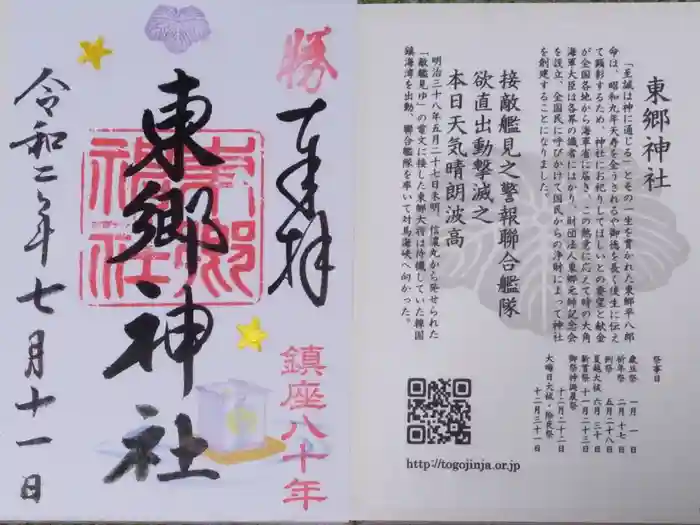 勝
奉拝
東郷神社
東郷神社
鎮座八十年
令和二年七月十一日
東郷神社
「至誠は神に通じる」とその一生を貫かれた東郷平八郎
命は、昭和九年天寿を全うされるや御徳を長く後生に伝え
て顕彰するため、神社にお祀りしてほしいとの要望と献金
が全国各地から海軍省に届き、この熱意に応えて時の大角
海軍大臣は各界の識者にはかり、財団法人東郷元帥記念会
を設立、全国民に呼びかけて国民からの浄財によって神社
を創建することになりました。
接敵艦見之警報聯合艦隊
欲直出動撃滅之
本日天気晴朗波高
明治三十八年五月二十七日未明、信濃丸から発せられた
「敵艦見ゆ」の電文に接した東郷大将は待機していた韓国
鎮海湾を出動、聯合艦隊を率いて対馬海峡へ向かった。
祭事日
歳旦祭 一月一日
祈年祭 二月十七日
例祭 五月二十八日
夏越大祓 六月三十日
新嘗祭 十一月二十三日
御祭神誕辰祭 十二月二十二日
大晦日大祓・除夜祭 十二月三十一日
http://togojinja.or.jp